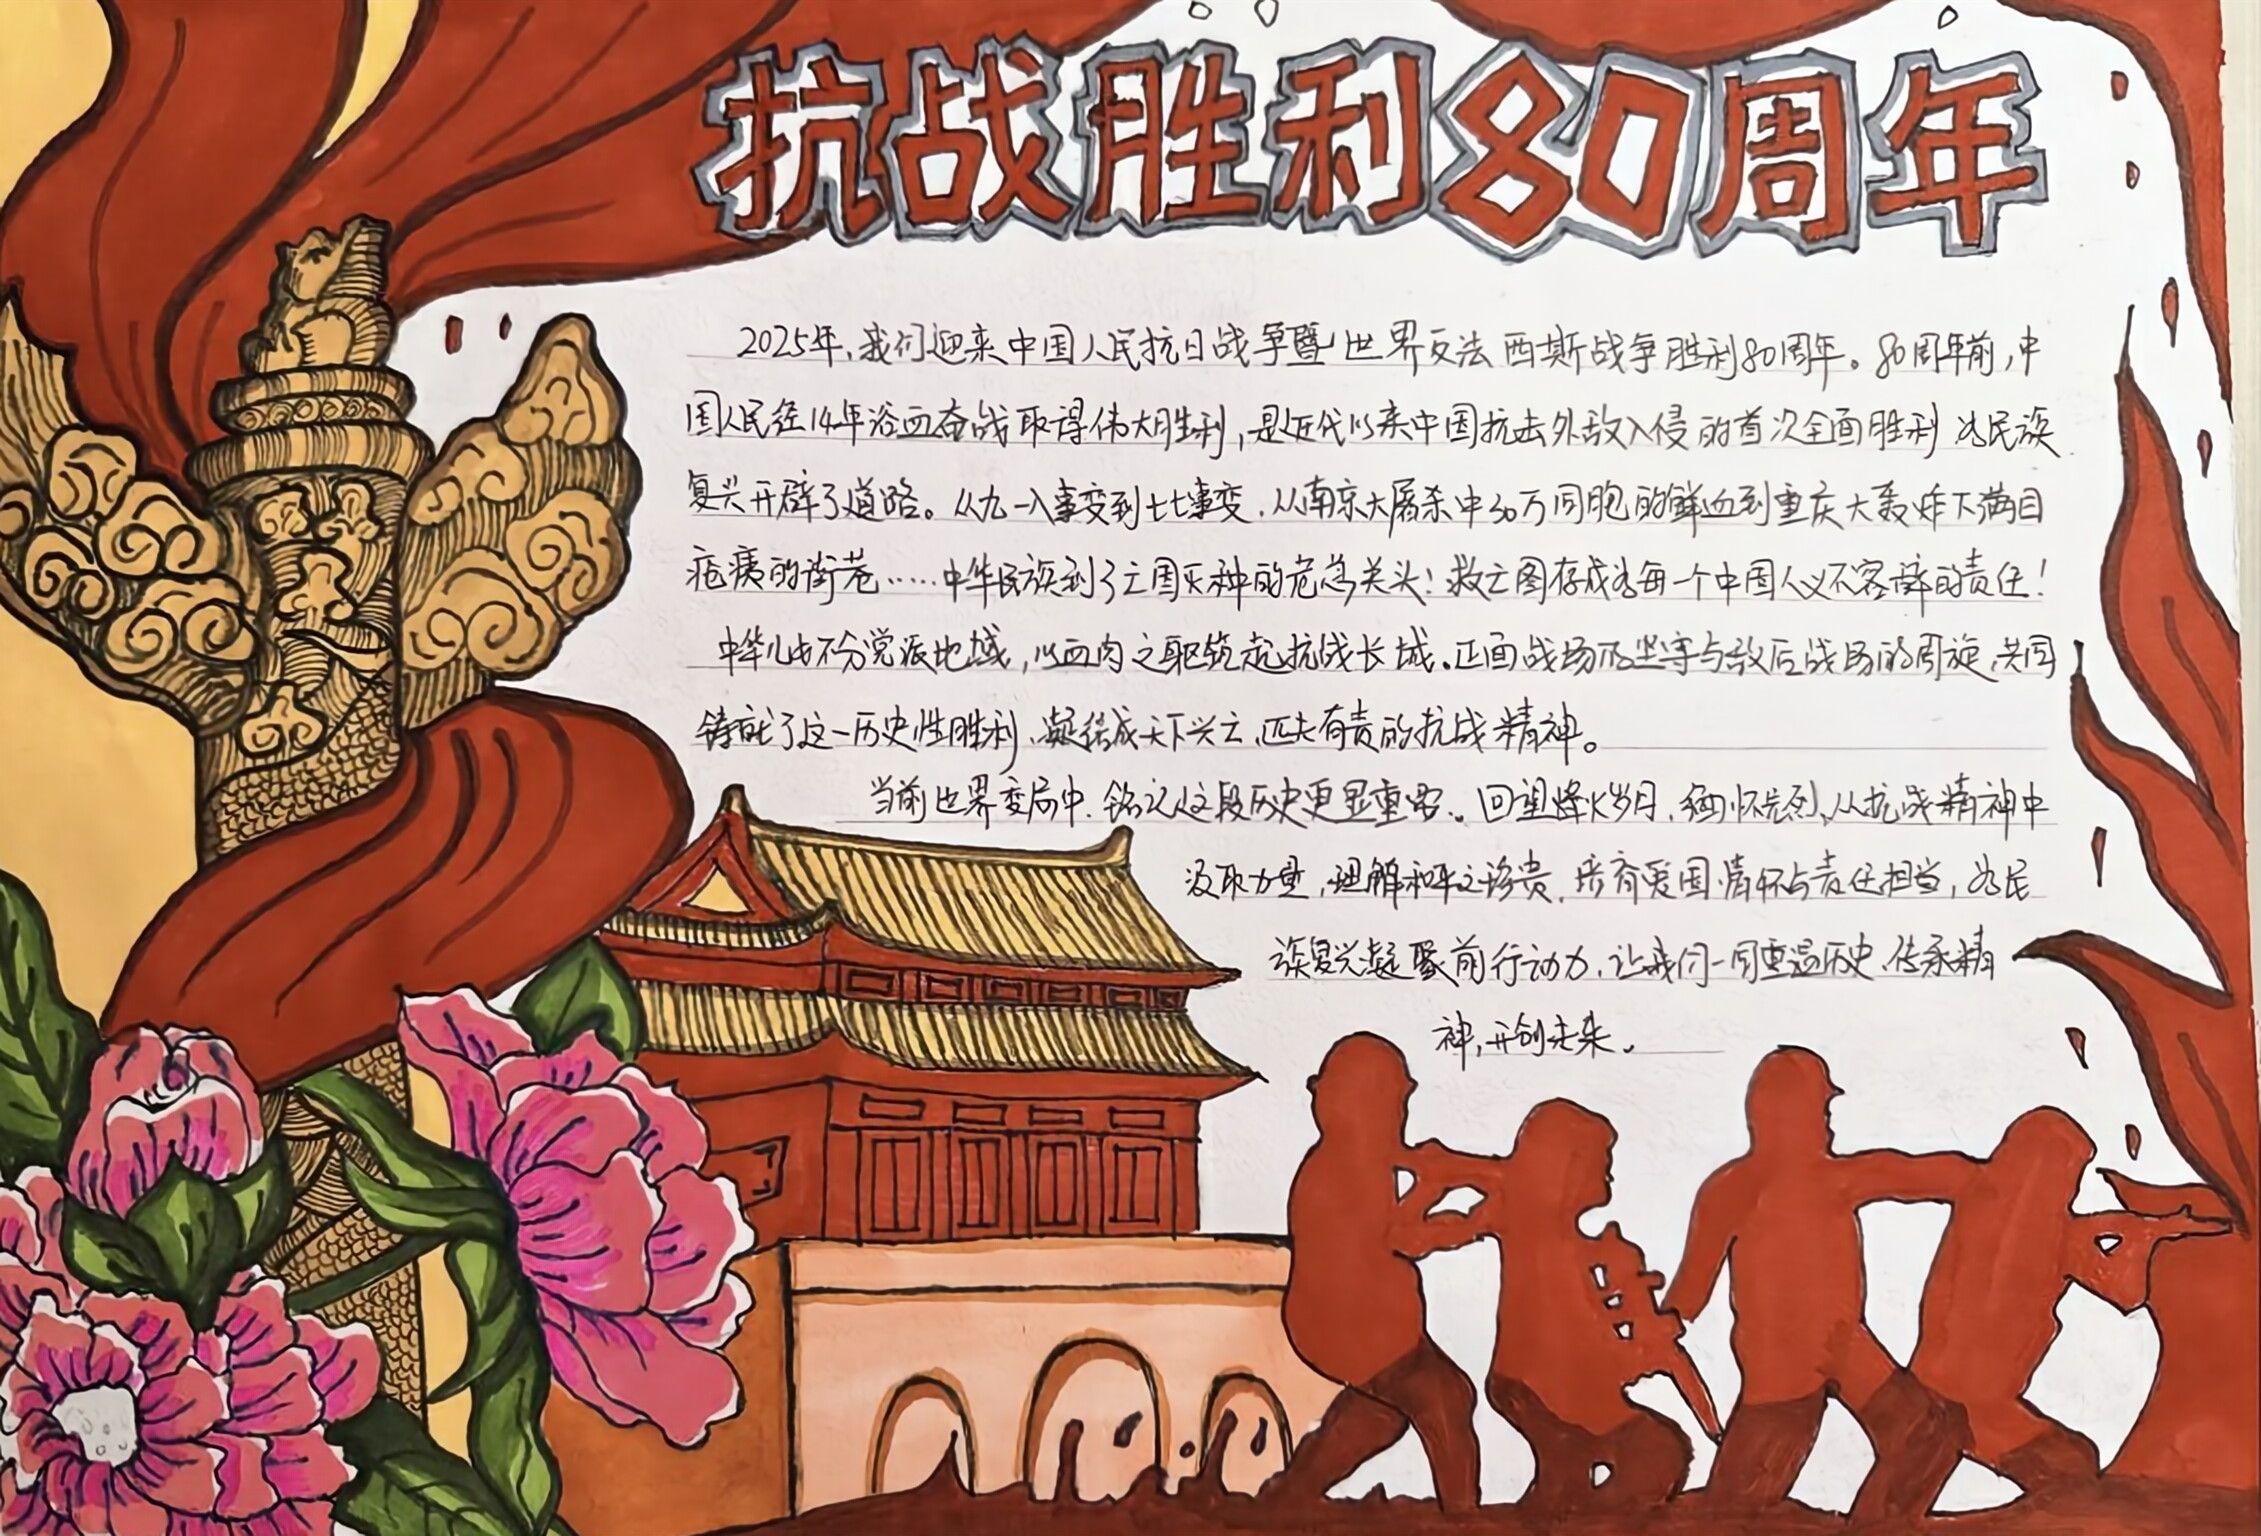 抗战胜利80周年
2025年，我们迎来中国人民抗日战争暨世界反法西斯战争胜利80周年。80周年前，中
国人民经14年浴血奋战取得伟大胜利，是近代以来中国抗击外敌入侵的首次全面胜利 为民族
复兴开辟了道路。从九一八事变到七七事变，从南京大屠杀中30万同胞的鲜血到重庆大轰炸下满目
疮痍的街巷……中华民族到了亡国灭种的危急关头！救亡图存成为每一个中国人义不容辞的责任！
中华儿女不分党派地域，以血肉之躯筑起抗战长城。正面战场的坚守与敌后战场的周旋，共同
铸就了这一历史性胜利，凝结成天下兴亡，匹夫有责的抗战精神。
当前世界变局中，铭记这段历史更显重要。回望烽火岁月，缅怀先烈，从抗战精神中
汲取力量，理解和平之珍贵，培育爱国情怀与责任担当，为民
族复兴凝聚前行动力，让我们一同重温历史，传承精
神，开创未来。